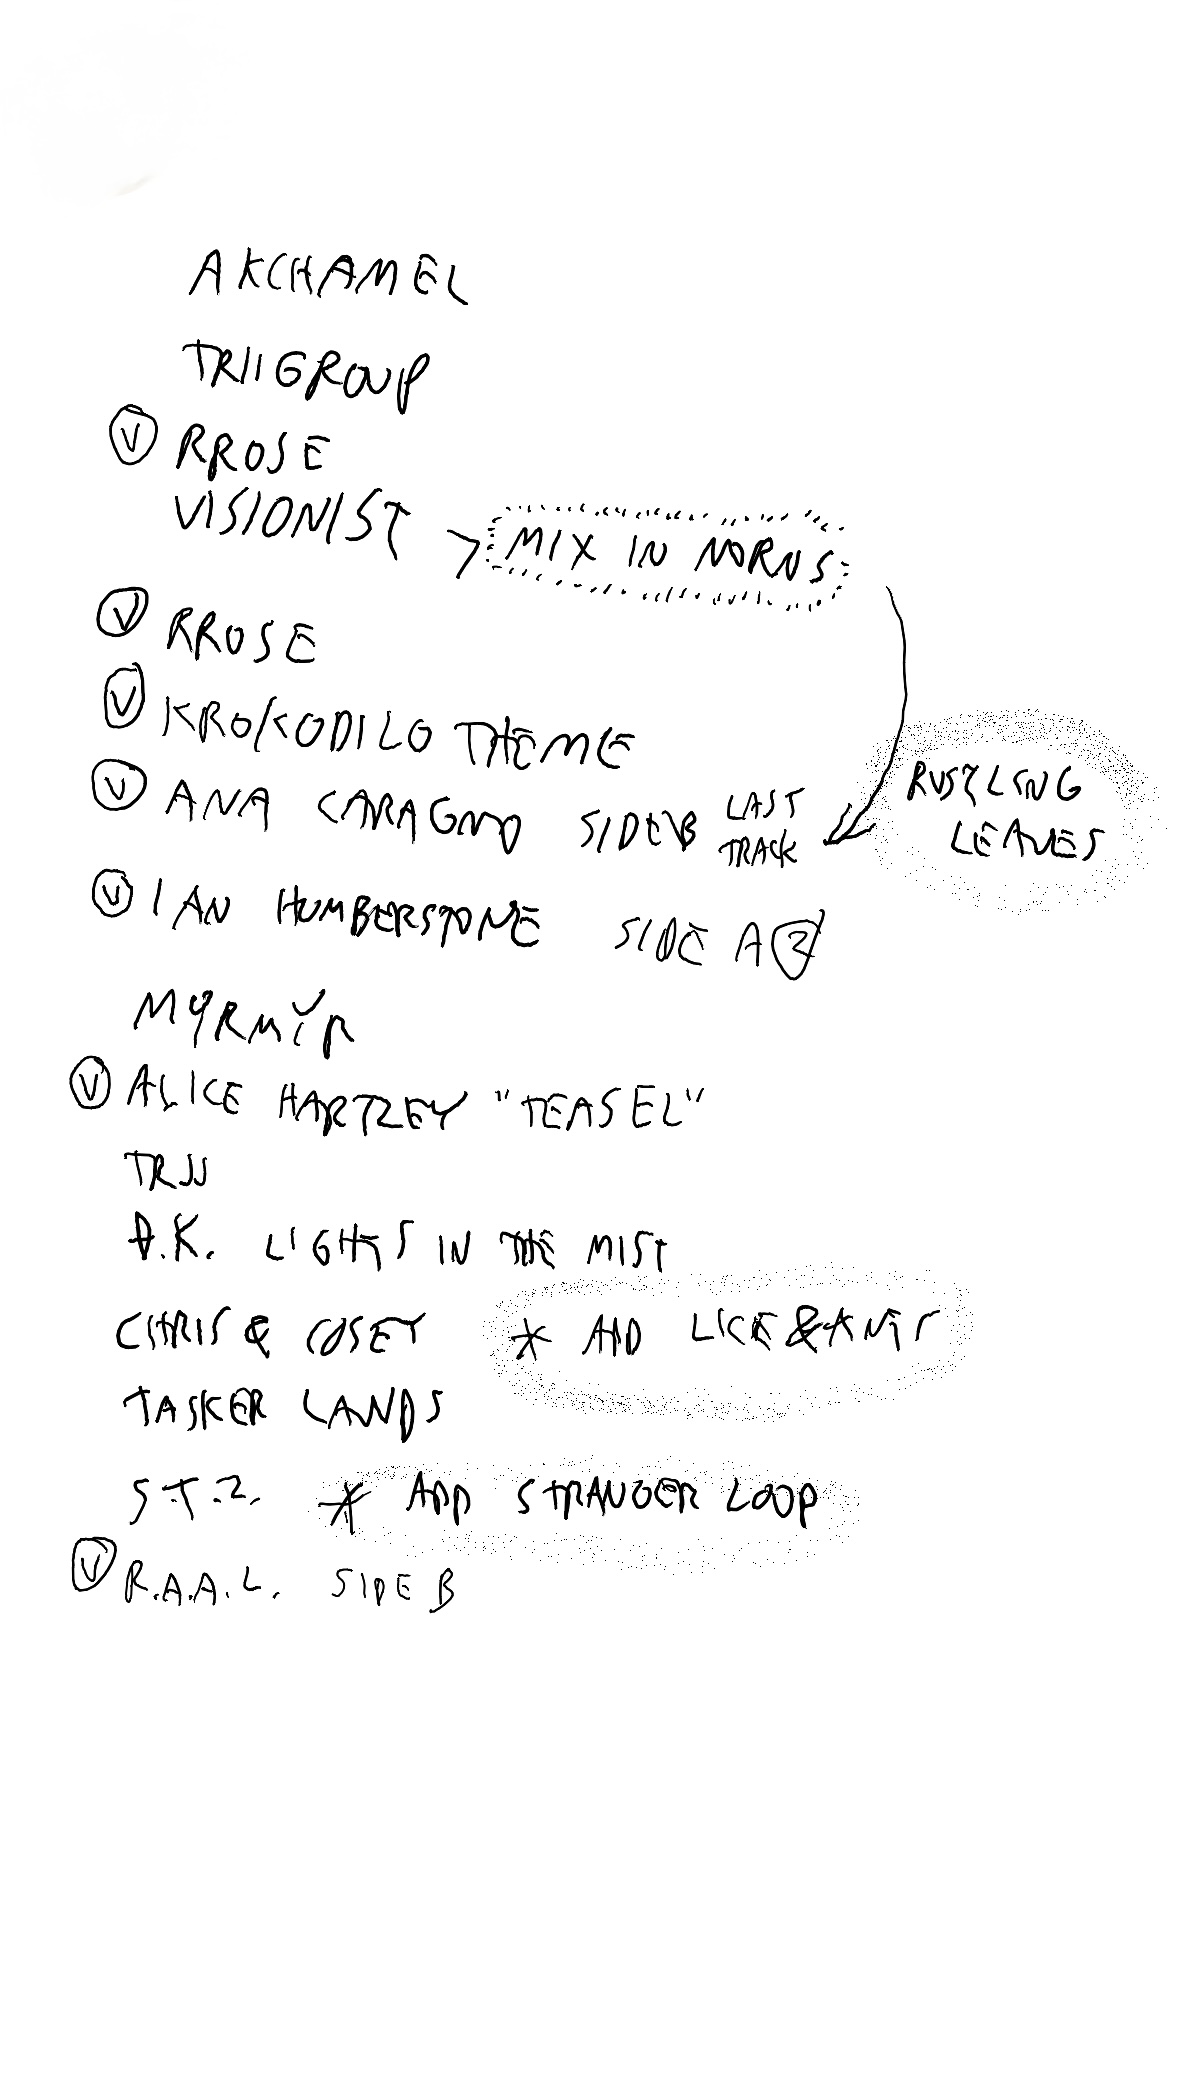 AKCHAMEL
TRIIGROUP
Ⓥ RROSE
VISIONIST > MIX IN NORNS
Ⓥ RROSE
Ⓥ KROKODILO THEME
RUSTLING
LEAVES
Ⓥ ANA CARAGNO SIDE B LAST
TRACK
Ⓥ IAN HUMBERSTONE SIDE A ②
MYRMYR
Ⓥ ALICE HARTLEY "TEASEL"
TRJJ
D.K. LIGHTS IN THE MIST
CHRIS & COSEY * ADD LICE & ANTS
TASKER LANDS
S.T.2. * ADD STRANGER LOOP
Ⓥ R.A.A.L. SIDE B